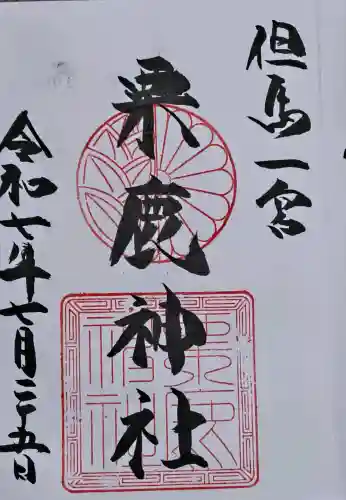 但馬一宮
粟鹿神社
令和七年七月二十五日